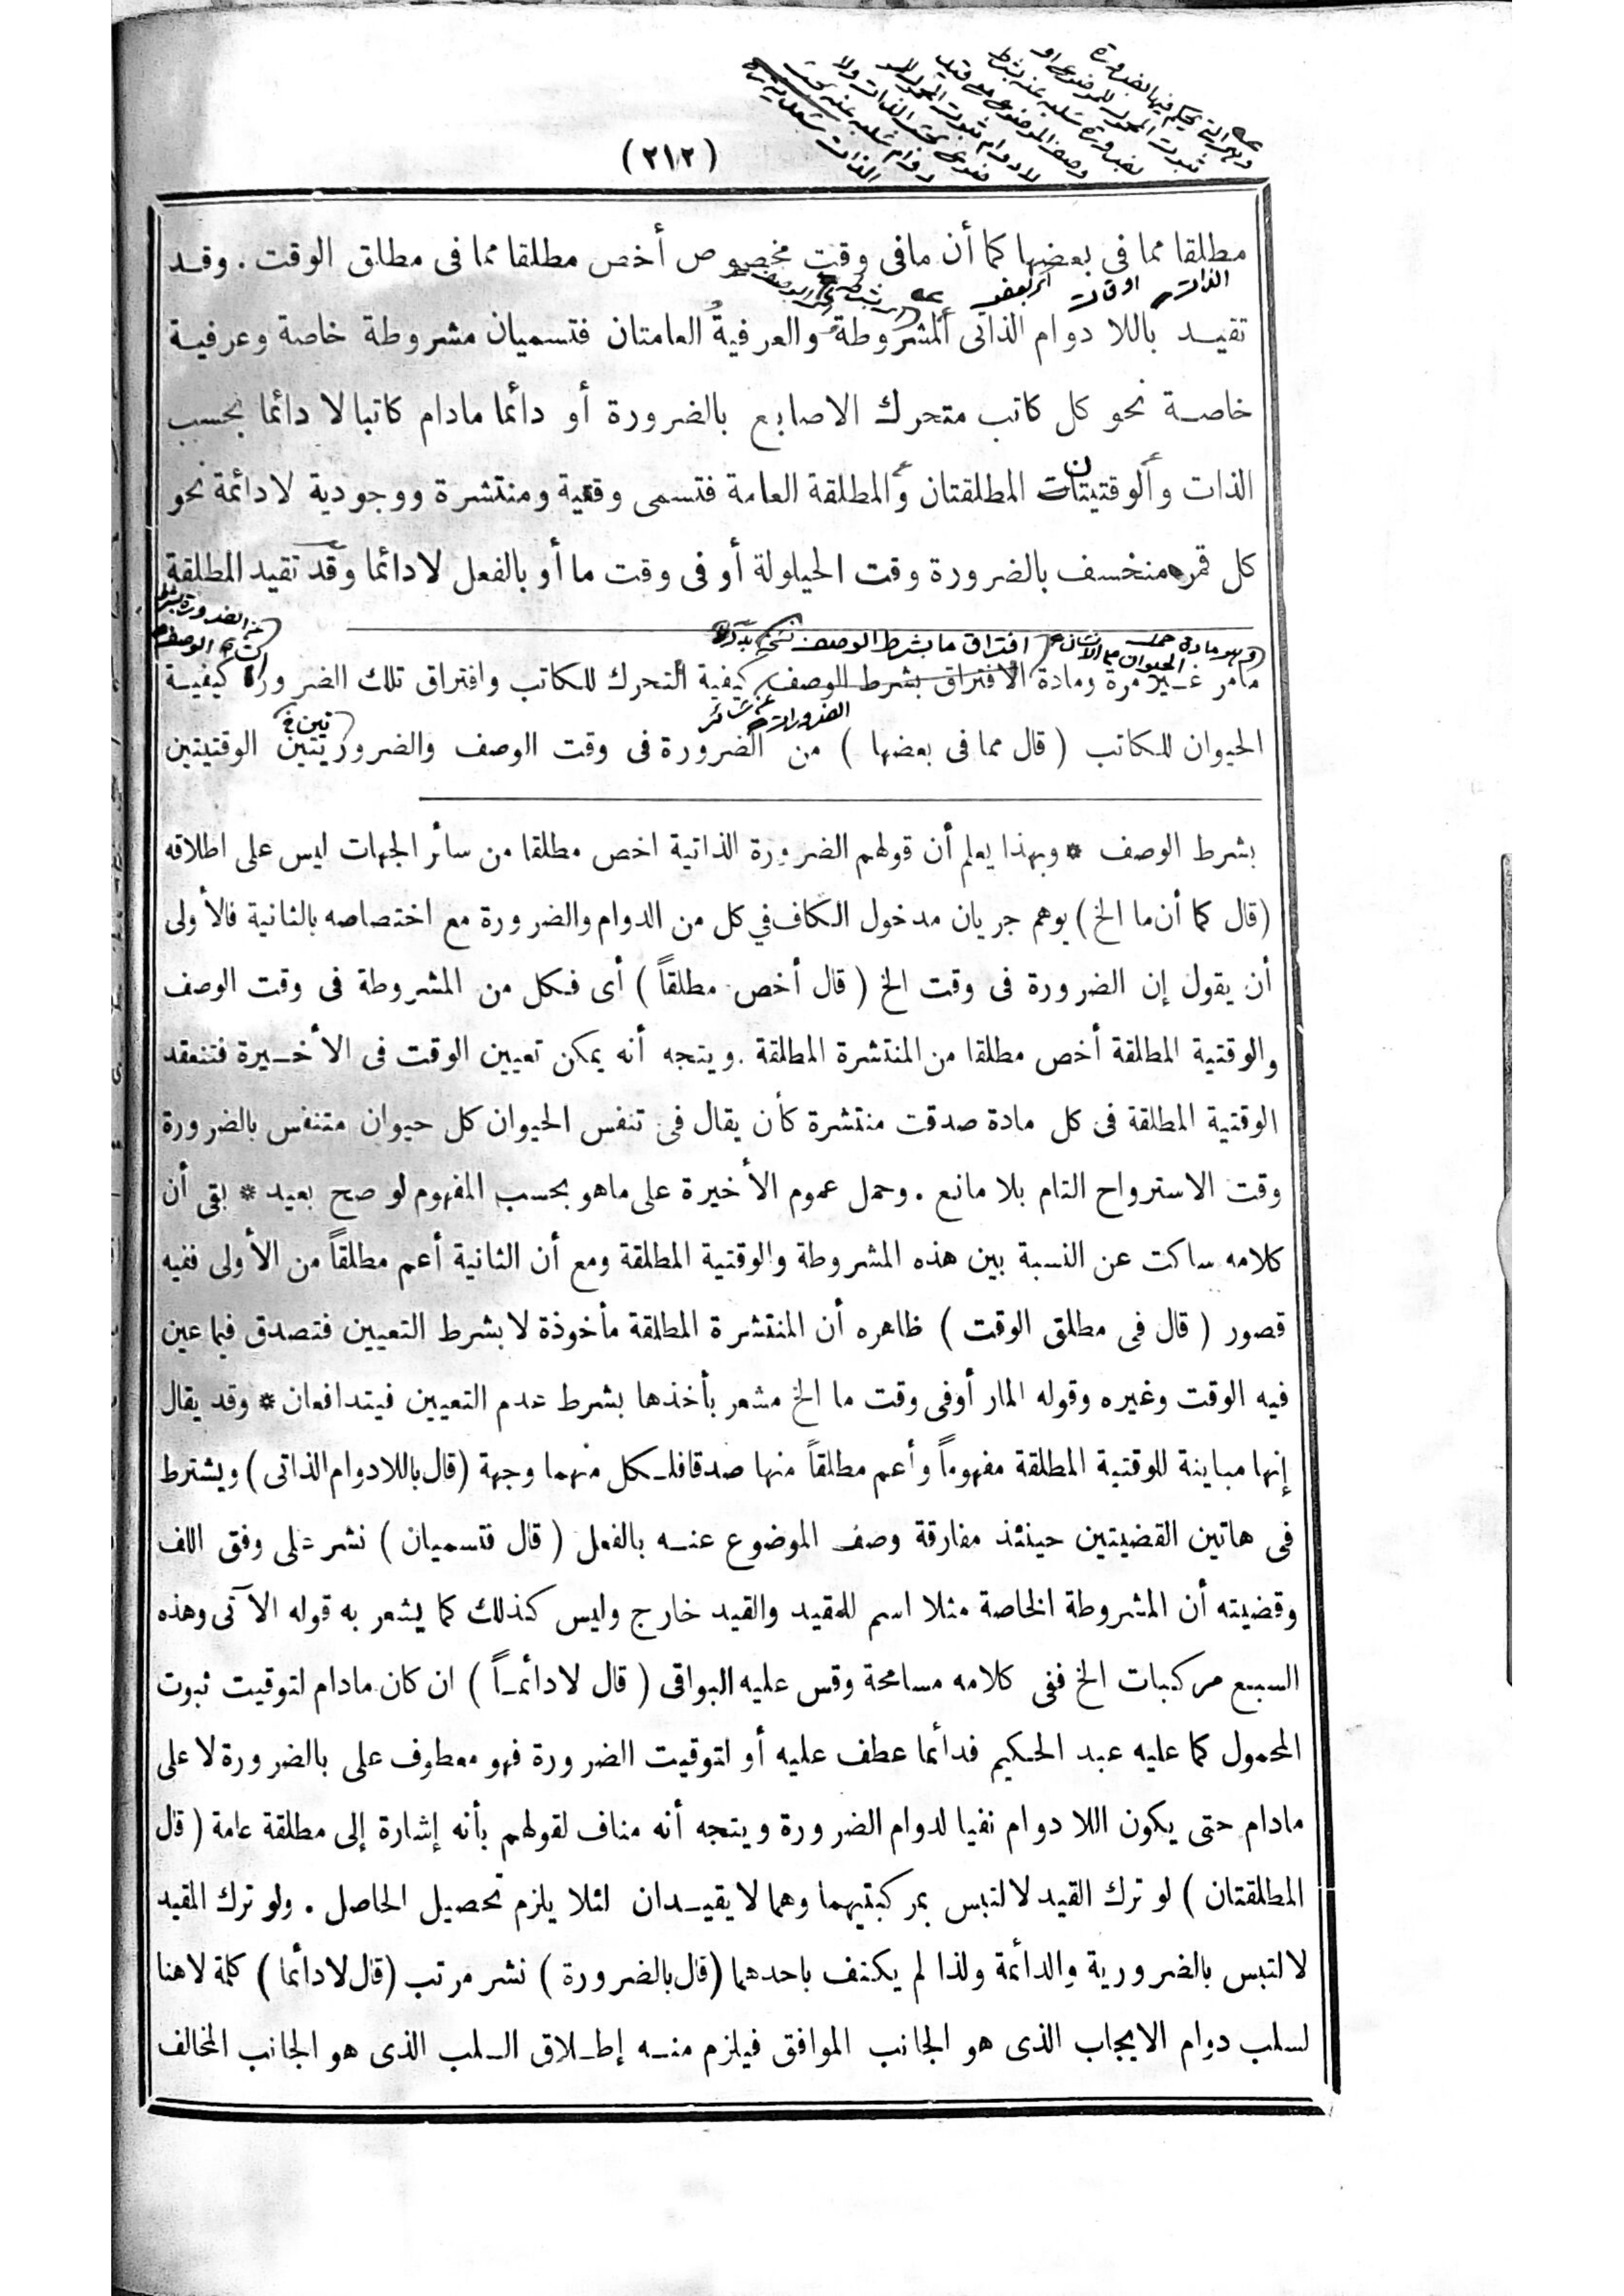 (٢١٢)
مطلقا مما فى بعضها كما أن مافى وقت مخصوص أخص مطلقا مما فى مطلق الوقت . وقد
تقيد باللا دوام الذاتى المشروطة والعرفية العامتان فتسميان مشروطة خاصة وعرفية
خاصة نحو كل كاتب متحرك الاصابع بالضرورة أو دائما مادام كاتبا لا دائما بحسب
الذات والوقتيتان المطلقتان والمطلقة العامة فتسمى وقتية ومنتشرة ووجودية لادائمة نحو
كل قمر منخسف بالضرورة وقت الحيلولة أو فى وقت ما أو بالفعل لادائما وقد تقيد المطلقة
مامر غير مرة ومادة الافتراق بشرط الوصف كيفية التحرك للكاتب وافتراق تلك الضرورة كيفية
الحيوان للكاتب ( قال مما فى بعضها ) من الضرورة فى وقت الوصف والضروريتين الوقتيتين
بشرط الوصف * وبهذا يعلم أن قولهم الضرورة الذاتية اخص مطلقا من سائر الجهات ليس على اطلاقه
(قال كما أن ما الخ) يوهم جريان مدخول الكاف في كل من الدوام والضرورة مع اختصاصه بالثانية فالأولى
أن يقول إن الضرورة فى وقت الخ ( قال أخص مطلقاً ) أى فكل من المشروطة فى وقت الوصف
والوقتية المطلقة أخص مطلقا من المنتشرة المطلقة . ويتجه أنه يمكن تعيين الوقت فى الأخيرة فتنعقد
الوقتية المطلقة فى كل مادة صدقت منتشرة كأن يقال فى تنفس الحيوان كل حيوان متنفس بالضرورة
وقت الاسترواح التام بلا مانع . وحمل عموم الأخيرة على ماهو بحسب المفهوم لو صح بعيد * بقى أن
كلامه ساكت عن النسبة بين هذه المشروطة والوقتية المطلقة ومع أن الثانية أعم مطلقاً من الأولى ففيه
قصور ( قال فى مطلق الوقت ) ظاهره أن المنتشرة المطلقة مأخوذة لا بشرط التعيين فتصدق فيما عين
فيه الوقت وغيره وقوله المار أوفى وقت ما الخ مشعر بأخذها بشرط عدم التعيين فيتدافعان * وقد يقال
إنها مباينة للوقتية المطلقة مفهوماً وأعم مطلقاً منها صدقا فلكل منهما وجهة (قال باللادوام الذاتى) ويشترط
فى هاتين القضيتين حينئذ مفارقة وصف الموضوع عنه بالفعل ( قال فتسميان ) نشر على وفق اللف
وقضيته أن المشروطة الخاصة مثلا اسم للمقيد والقيد خارج وليس كذلك كما يشعر به قوله الآتى وهذه
السبع مركبات الخ ففى كلامه مسامحة وقس عليه البواقى ( قال لادائماً ) ان كان مادام لتوقيت ثبوت
المحمول كما عليه عبد الحكيم فدائما عطف عليه أو لتوقيت الضرورة فهو معطوف على بالضرورة لا على
مادام حتى يكون اللا دوام نفيا لدوام الضرورة ويتجه أنه مناف لقولهم بأنه إشارة إلى مطلقة عامة ( قال
المطلقتان ) لو ترك القيد لالتبس بمركبتيهما وهما لا يقيدان لئلا يلزم تحصيل الحاصل . ولو ترك المقيد
لالتبس بالضرورية والدائمة ولذا لم يكتف باحدهما (قال بالضرورة) نشر مرتب (قال لادائما) كلمة لا هنا
لسلب دوام الايجاب الذى هو الجانب الموافق فيلزم منه إطلاق السلب الذى هو الجانب المخالف